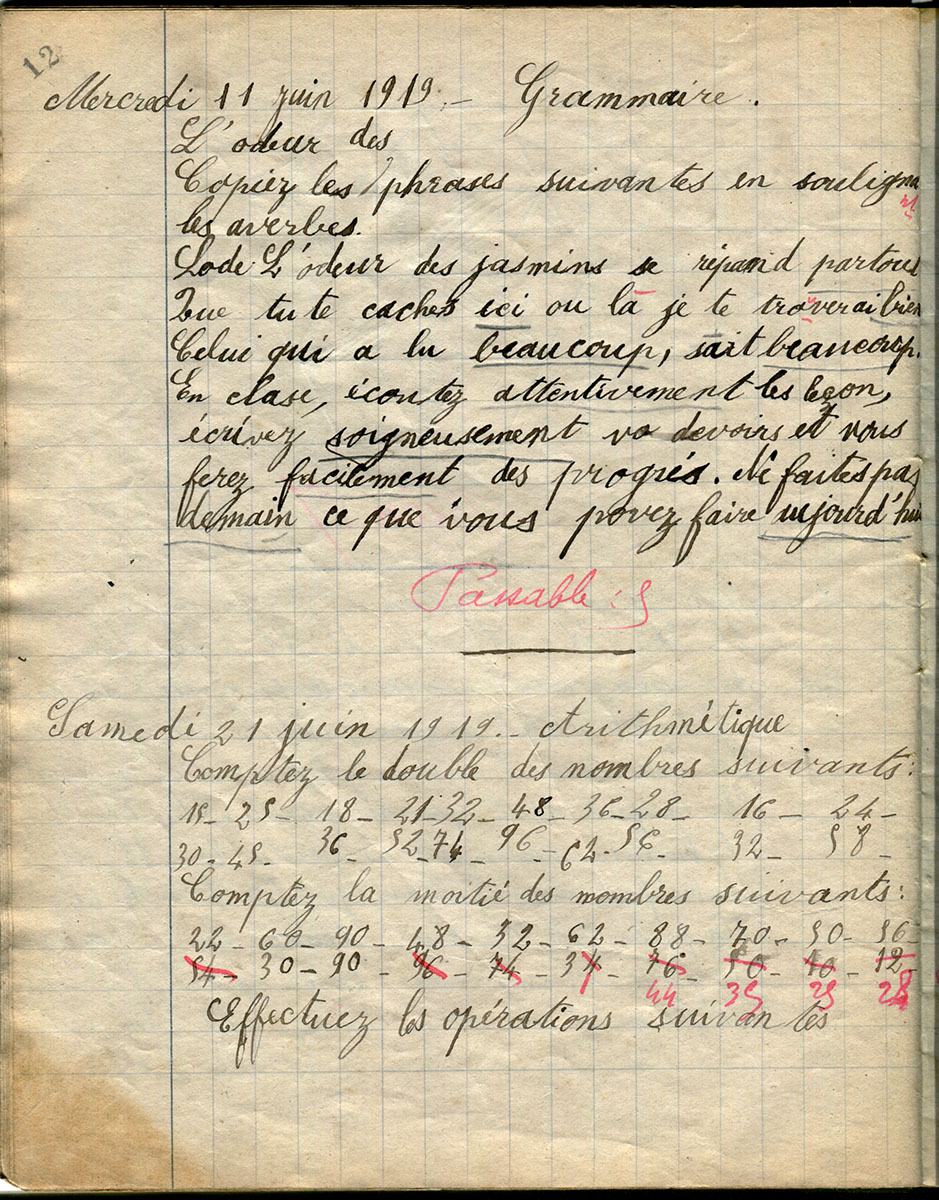 12
Mercredi 11 juin 1919. – Grammaire.
L'odeur des
Copiez les phrases suivantes en souligna
nt
les averbes.
Lode L'odeur des jasmins se répand partout
Que tu te caches ici ou là je te troverai bien
u
Celui qui a lu beaucoup, sait beaucoup.
En clase, écoutez attentivement les leçon,
écrivez soigneusement vo devoirs et vous
ferez facilement des progrés. Ne faites pas
demain ce que vous povez faire aujourd'hui
Passable : 5
Samedi 21 juin 1919. – Arithmétique
Comptez le double des nombres suivants:
15 – 25 – 18 – 21 – 32 – 48 – 36 – 28 – 16 – 24 –
30 – 45 – 36 – 52 – 74 – 96 – 62 – 56 – 32 – 58 –
Comptez la moitié des nombres suivants:
22 – 60 – 90 – 48 – 32 – 62 – 88 – 70 – 50 – 56 –
54 – 30 – 90 – 96 – 74 – 34 – 76 – 50 – 10 – 12 –
44 35 25 28
Effectuez les opérations suivantes